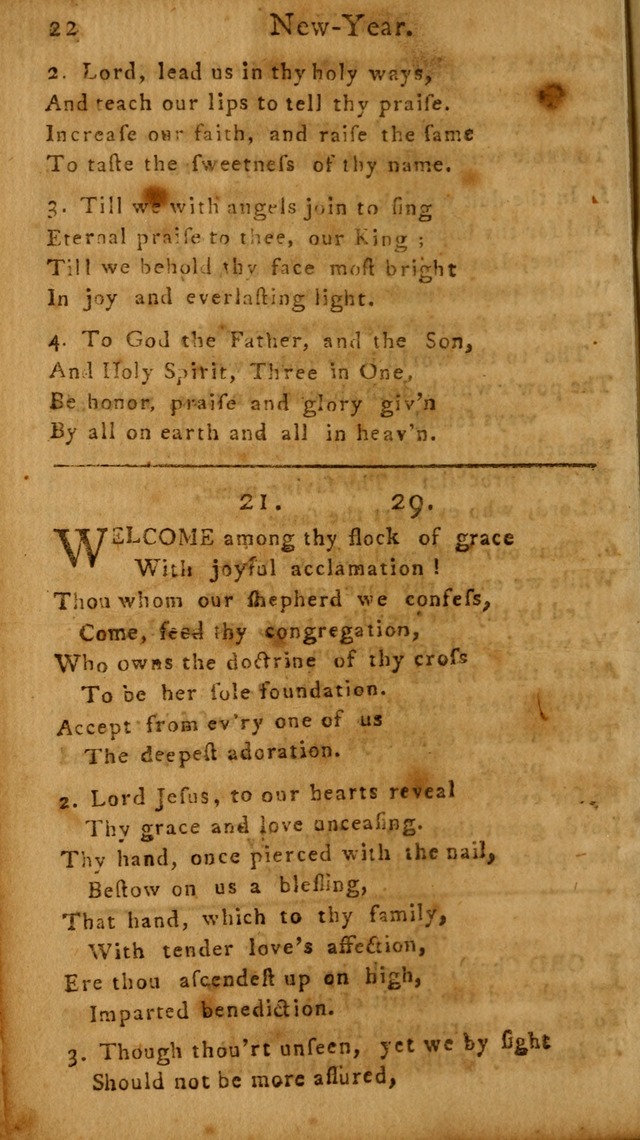 22 New-Year.
2. Lord, lead us in thy holy ways,
And teach our lips to tell thy praiſe.
Increaſe our faith, and raiſe the ſame
To taſte the ſweetneſs of thy name.
3. Till we with angels join to ſing
Eternal praiſe to thee, our King ;
Till we behold thy face moſt bright
In joy and everlaſting light.
4. To God the Father, and the Son,
And Holy Spirit, Three in One,
Be honor, praiſe and glory giv'n
By all on earth and all in heav'n.
21. 29.
WELCOME among thy flock of grace
With joyful acclamation !
Thou whom our ſhepherd we confeſs,
Come, feed thy congregation,
Who owns the doctrine of thy croſs
To be her ſole foundation.
Accept from ev'ry one of us
The deepeſt adoration.
2. Lord Jeſus, to our hearts reveal
Thy grace and love unceaſing.
Thy hand, once pierced with the nail,
Beſtow on us a bleſſing,
That hand, which to thy family,
With tender love's affection,
Ere thou aſcendeſt up on high,
Imparted benediction.
3. Though thou'rt unſeen, yet we by ſight
Should not be more aſſured,